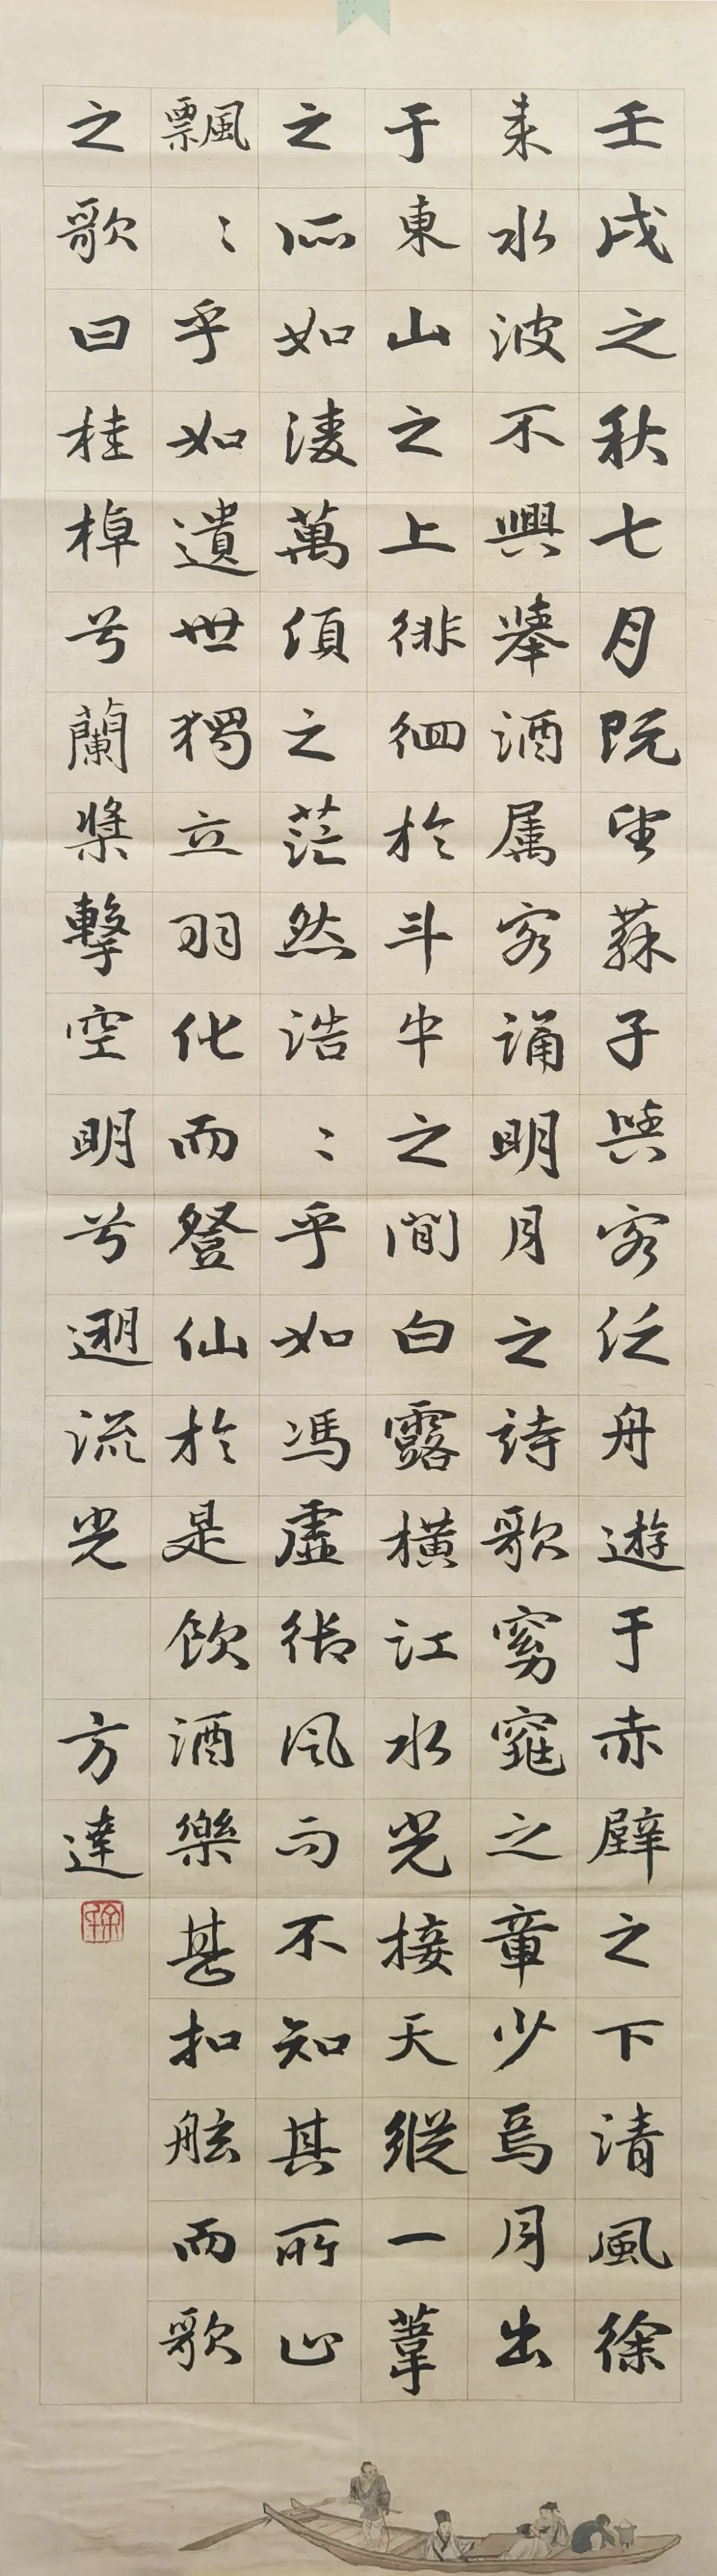 壬戌之秋七月既望蘇子與客泛舟遊于赤壁之下清風徐
来水波不興舉酒属客誦明月之詩歌窈窕之章少焉月出
于東山之上徘徊於斗牛之間白露横江水光接天縱一葦
之所如淩萬頃之茫然浩〻乎如馮虛御風而不知其所止
飄〻乎如遺世獨立羽化而登仙於是飲酒樂甚扣舷而歌
之歌曰桂棹兮蘭槳擊空明兮遡流光 方達